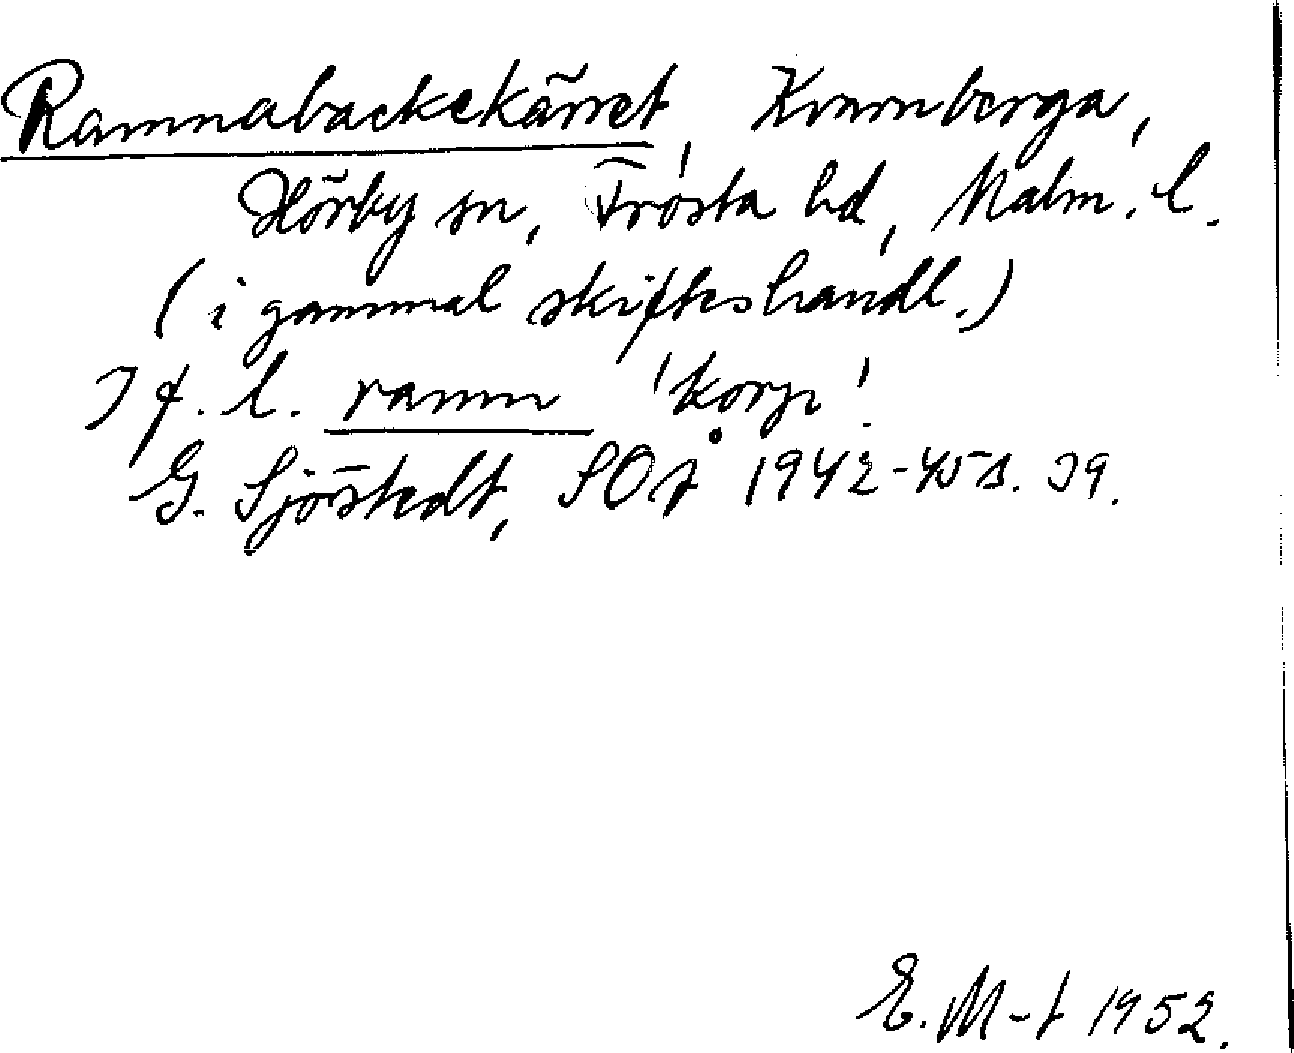 Ramnabackekärret, Kvarnberga,
Hörby sn, Frosta hd, Malm. l.
(i gammal skifteshandl.)
Jf. l. ramn 'korp'.
G. Sjöstedt, SOÅ 1942-45 s. 39.
E. M-t 1952.